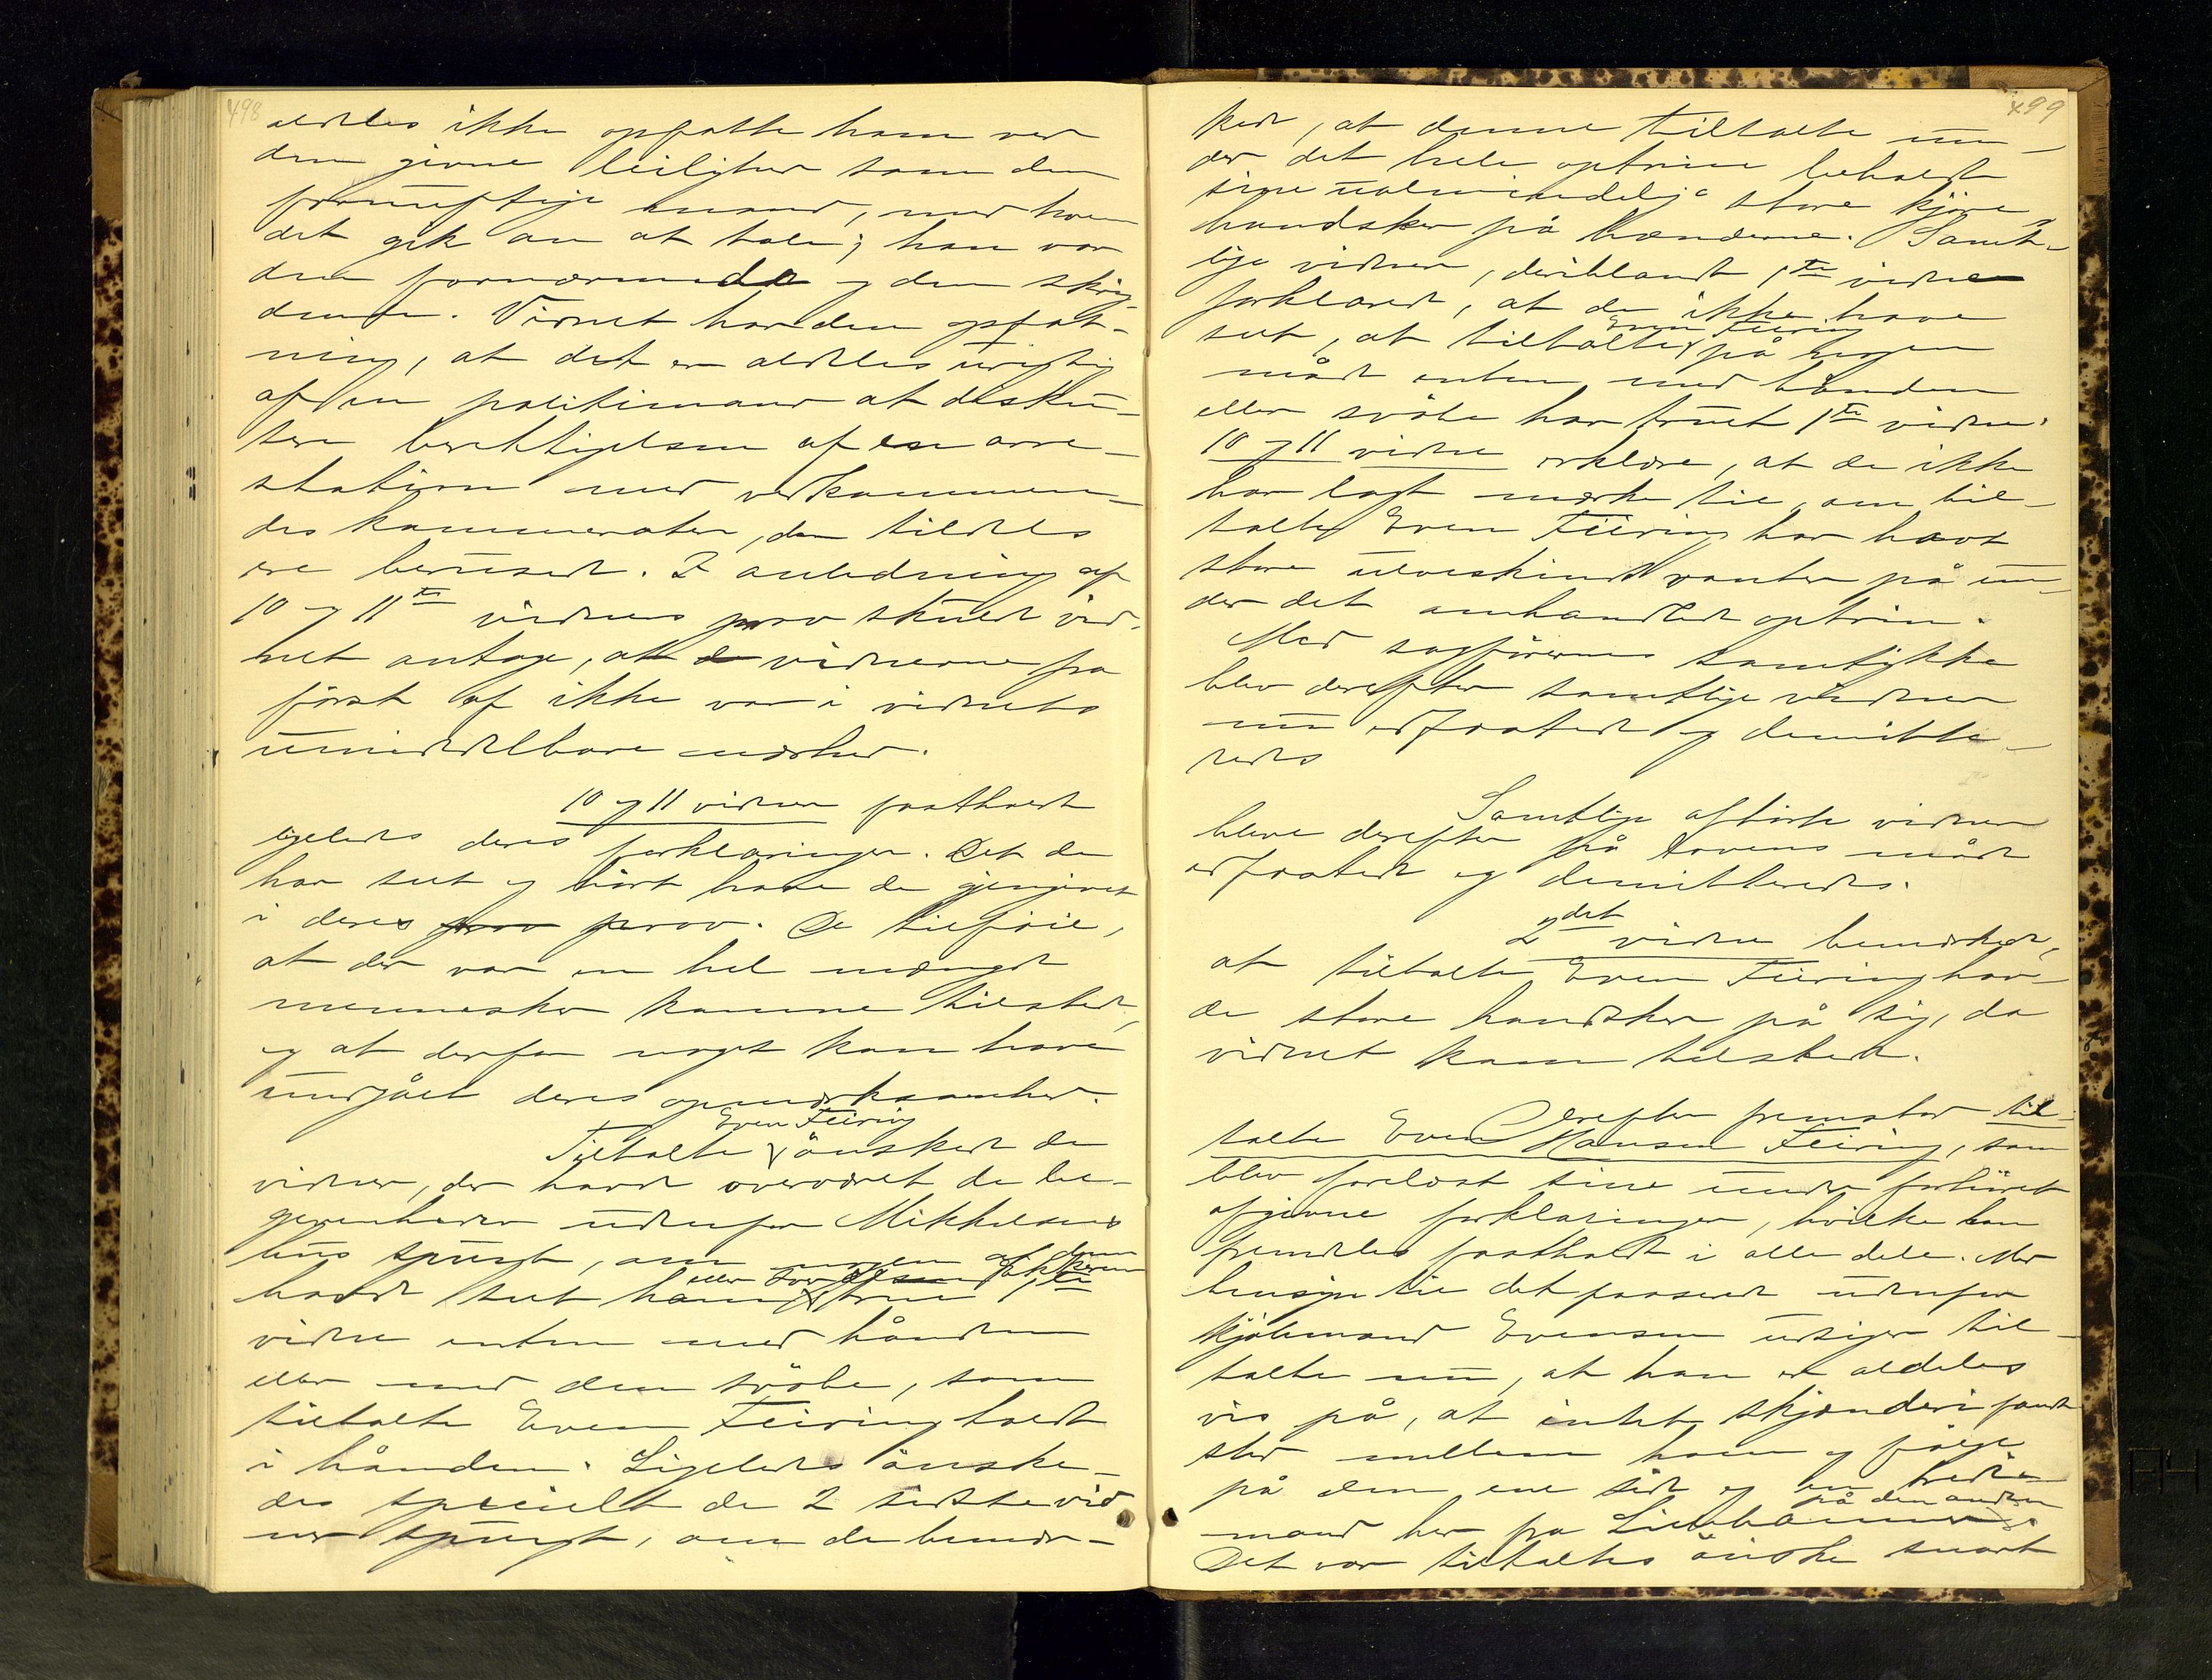 498
aldeles ikke opfatte ham ved
den givne leilighed som den
fornuftige mand, med hvem
det gik an at tale; han var
den fornærmede og den skri-
dende. Vidnet har den opfat-
ning, at det er aldeles urigtig
af en politimand at disku-
tere berettigelsen af en arre-
station med vedkommen-
des kammerater, der tildels
ere berusede. I anledning af
10 og 11te vidnes prov skulde vid-
net antage, at de vidnerne fra
först af ikke var i vidnets
umiddelbare nærhed.
10 og 11 vidner fastholdt
ligeledes deres forklaringer. Det de
har seet og hört have de gjengivet
i deres prov prov. De tilföie,
at der var en hel mængde
mennesker komne tilstede,
og at derfor noget kan have
undgået deres opmærksomhed.
Even Feiring
Tiltalte önskede de
vidner, der havde overværet de be-
givenheder udenfor Mikkelsens
hus spurgt, om nogen af dem
havde seet ham true 1te
vidne enten med hånden
eller med den svöbe, som
tiltalte Even Feiring holdt
i hånden. Ligeledes önske-
des specielt de 2 sidste vid
ner spurgt, om de bemær-
499
kede, at denne tiltalte un-
der det hele optrin beholdt
sine ualmindelig store kjöre-
handsker på hænderne. Samt-
lige vidner, deriblandt 1te vidne
forklarede, at de ikke have
Even Feiring
seet, at tiltalte på nogen
måde enten med hånden
eller svöbe har truet 1te vidne.
10 og 11 vidne erklære, at de ikke
har lagt mærke til, om til-
talte Even Feiring har havt
store ulveskinds vanter på un-
der det omhandlede optrin.
Med sagförernes samtykke
blev derefter samtlige vidner
nu edfæstede og demitte-
redes
Samtlige afhörte vidner
bleve derefter på lovens måde
edfæstede og demitteredes.
2det vidne bemærkede,
at tiltalte Even Feiring hav-
de store handsker på sig, da
vidnet kom tilstede.
Derefter fremstod til-
talte Even Hansen Feiring, som
blev forelæst sine under forhöret
afgivne forklaringer, hvilke han
fremdeles fastholdt i alle dele. Med
hensyn til det passerede udenfor
kjöbmand Evensen udsiger til-
talte nu, at han er aldeles
vis på, at intet skjænderi fandt
sted mellem ham og fölge
på den ene side og en
på den anden
mand her fra Lillehammer.
Det var tiltaltes önske snart